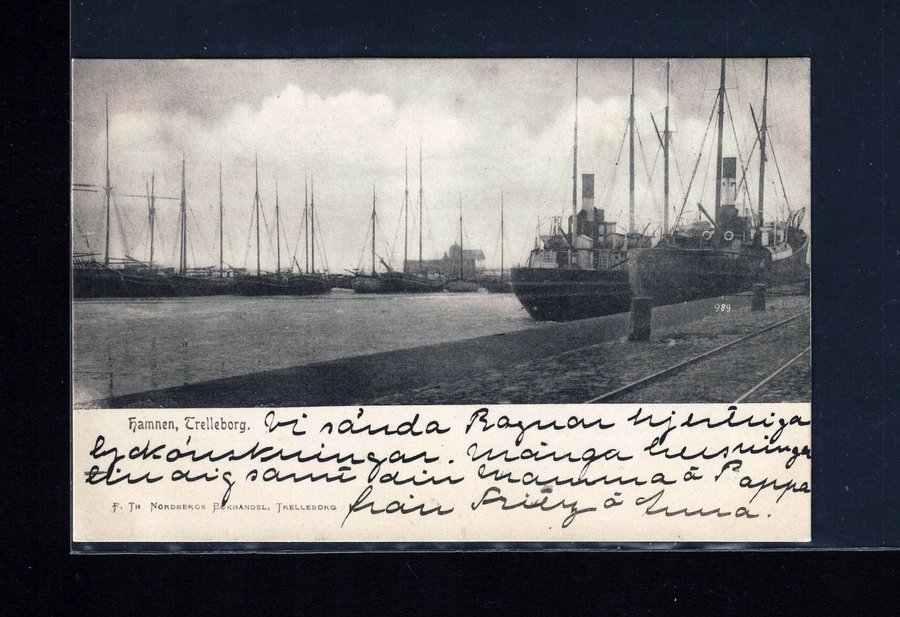 989
Hamnen, Trelleborg. Vi sända Ragnar hjertliga
lyckönskningar. Många helsningar
till dig samt din Mamma å Pappa
från Fritz å Anna.
F. TH NORDBERGS BOKHANDEL, TRELLEBORG